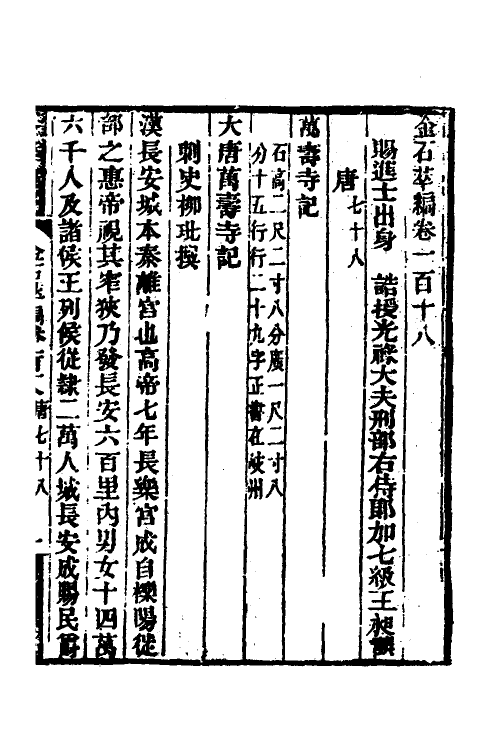 金石萃編卷一百十八
賜進士出身　誥授光祿大夫刑部右侍郎加七級王昶譔
唐七十八
萬壽寺記
石高二尺二寸八分廣一尺二寸八
分十五行行二十九字正書在岐州
大唐萬壽寺記
刺史柳玭撰
漢長安城本秦離宮也高帝七年長樂宮成自櫟陽徙
都之惠帝視其窄狹乃發長安六百里內男女十四萬
六千人及諸侯王列侯從隸二萬人城長安成賜民爵
金石萃編卷一百十八唐七十八　一